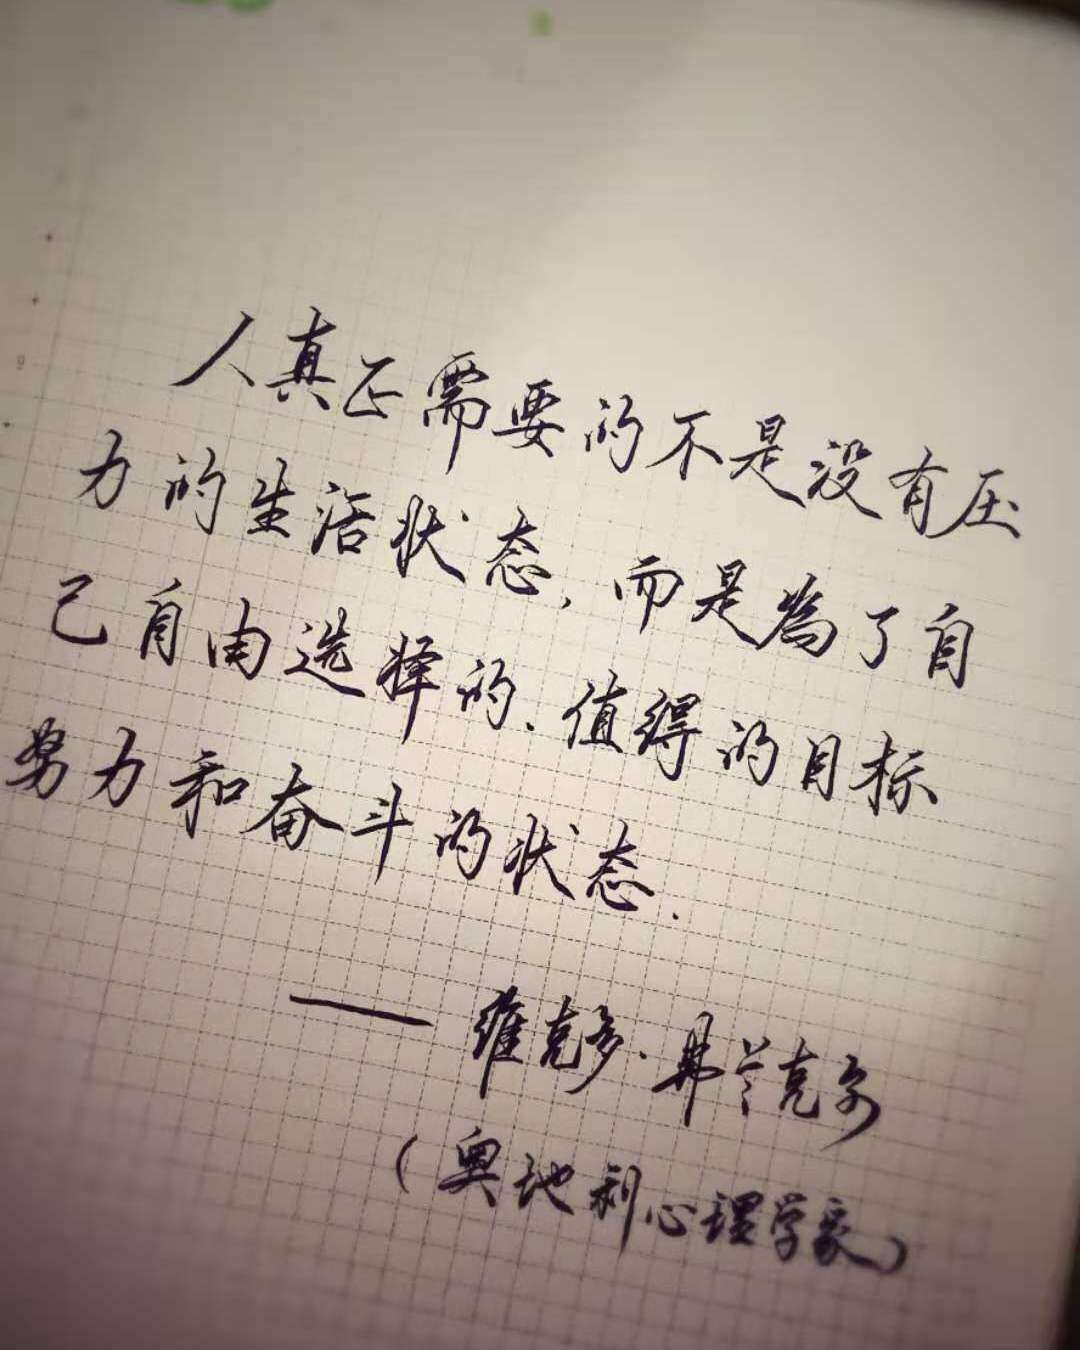 人真正需要的不是没有压
力的生活状态，而是為了自
己自由选择的、值得的目标
努力和奋斗的状态.
——维克多·弗兰克尔
（奥地利心理学家）